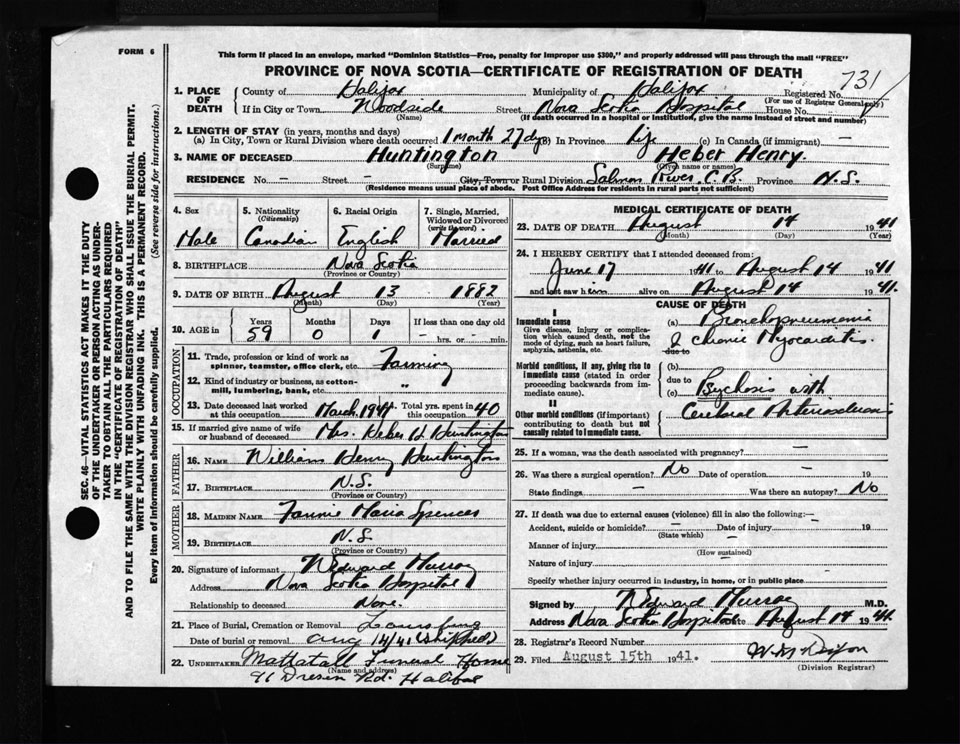 FORM 6
This form if placed in an envelope, marked "Dominion Statistics—Free, penalty for improper use $300," and properly addressed will pass through the mail "FREE"
PROVINCE OF NOVA SCOTIA—CERTIFICATE OF REGISTRATION OF DEATH
731
SEC. 46—VITAL STATISTICS ACT MAKES IT THE DUTY
OF THE UNDERTAKER OR PERSON ACTING AS UNDER-
TAKER TO OBTAIN ALL THE PARTICULARS REQUIRED
IN THE "CERTIFICATE OF REGISTRATION OF DEATH"
AND TO FILE THE SAME WITH THE DIVISION REGISTRAR WHO SHALL ISSUE THE BURIAL PERMIT.
WRITE PLAINLY WITH UNFADING INK. THIS IS A PERMANENT RECORD.
Every item of information should be carefully supplied. (See reverse side for instructions.)
1. PLACE OF DEATH County of Halifax Municipality of Halifax Registered No.
(For use of Registrar General only)
If in City or Town Woodside Street Nova Scotia Hospital House No.
(Name) (If death occurred in a hospital or institution, give the name instead of street and number)
2. LENGTH OF STAY (in years, months and days)
(a) In City, Town or Rural Division where death occurred 1 month 27 dys (b) In Province life (c) In Canada (if immigrant) —
3. NAME OF DECEASED Huntington Heber Henry.
(Surname) (Given name or names)
RESIDENCE No. — Street — City, Town or Rural Division Salmon River, C.B. Province N.S.
(Residence means usual place of abode. Post Office Address for residents in rural parts not sufficient)
4. Sex Male
5. Nationality (Citizenship) Canadian
6. Racial Origin English
7. Single, Married, Widowed or Divorced (write the word) Married
8. BIRTHPLACE Nova Scotia
(Province or Country)
9. DATE OF BIRTH August 13 1882
(Month) (Day) (Year)
10. AGE in Years 59 Months 0 Days 1 If less than one day old — hrs. or — min.
OCCUPATION
11. Trade, profession or kind of work as spinner, teamster, office clerk, etc. Farming
12. Kind of industry or business, as cotton-mill, lumbering, bank, etc. "
13. Date deceased last worked at this occupation March, 1941 Total yrs. spent in 40
15. If married give name of wife or husband of deceased Mrs. Heber H Huntington
FATHER
16. NAME William Henry Huntington
17. BIRTHPLACE N.S.
(Province or Country)
MOTHER
18. MAIDEN NAME Fannie Maria Spencer
19. BIRTHPLACE N.S.
(Province or Country)
20. Signature of informant Murray
Address Nova Scotia Hospital
Relationship to deceased None.
21. Place of Burial, Cremation or Removal
Date of burial or removal Aug 14/41 (shipped)
22. UNDERTAKER Mattatall Funeral Home
(Name and address)
91 Rd. Halifax
MEDICAL CERTIFICATE OF DEATH
23. DATE OF DEATH August 14 1941
(Month) (Day) (Year)
24. I HEREBY CERTIFY that I attended deceased from:
June 17 1941 to August 14 1941
and last saw him alive on August 14 1941.
CAUSE OF DEATH
I
Immediate cause
Give disease, injury or complication which caused death, not the mode of dying, such as heart failure, asphyxia, asthenia, etc.
(a) Bronchopneumonia
due to & Chronic Myocarditis.
Morbid conditions, if any, giving rise to immediate cause (stated in order proceeding backwards from immediate cause).
(b)
due to
(c) Psychosis with
II
Other morbid conditions (if important) contributing to death but not causally related to immediate cause.
Cerebral Arteriosclerosis
25. If a woman, was the death associated with pregnancy? —
26. Was there a surgical operation? No Date of operation — 19
State findings — Was there an autopsy? No
27. If death was due to external causes (violence) fill in also the following:—
Accident, suicide or homicide? — Date of injury 19
(State which)
Manner of injury —
(How sustained)
Nature of injury —
Specify whether injury occurred in industry, in home, or in public place
Signed by Murray M.D.
Address Nova Scotia Hospital Date August 14 1941.
28. Registrar's Record Number
29. Filed August 15th 1941.
(Division Registrar)